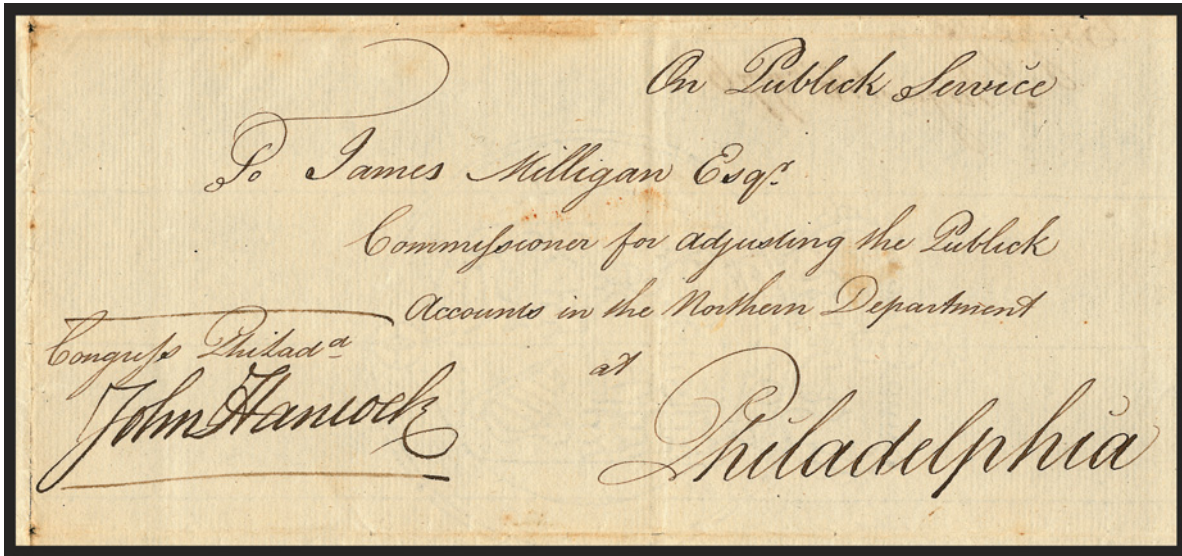 On Publick Service
To James Milligan Esqr.
Commissioner for adjusting the Publick
Accounts in the Northern Department
at
Philadelphia
Congress Philada
John Hancock